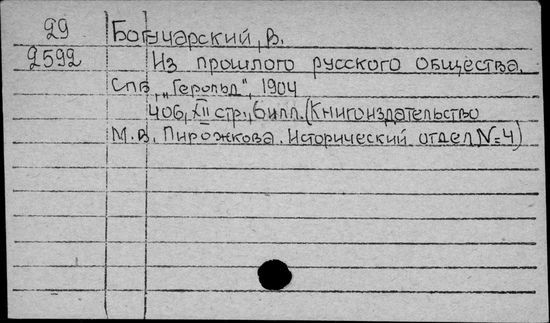 29 Богучарский, В.
2592 Из прошлого русского общества.
Спб, „Герольд", 1904
406, XII стр., 6 илл. (Книгоиздательство
М.В. Пирожкова. Исторический отдел №4)